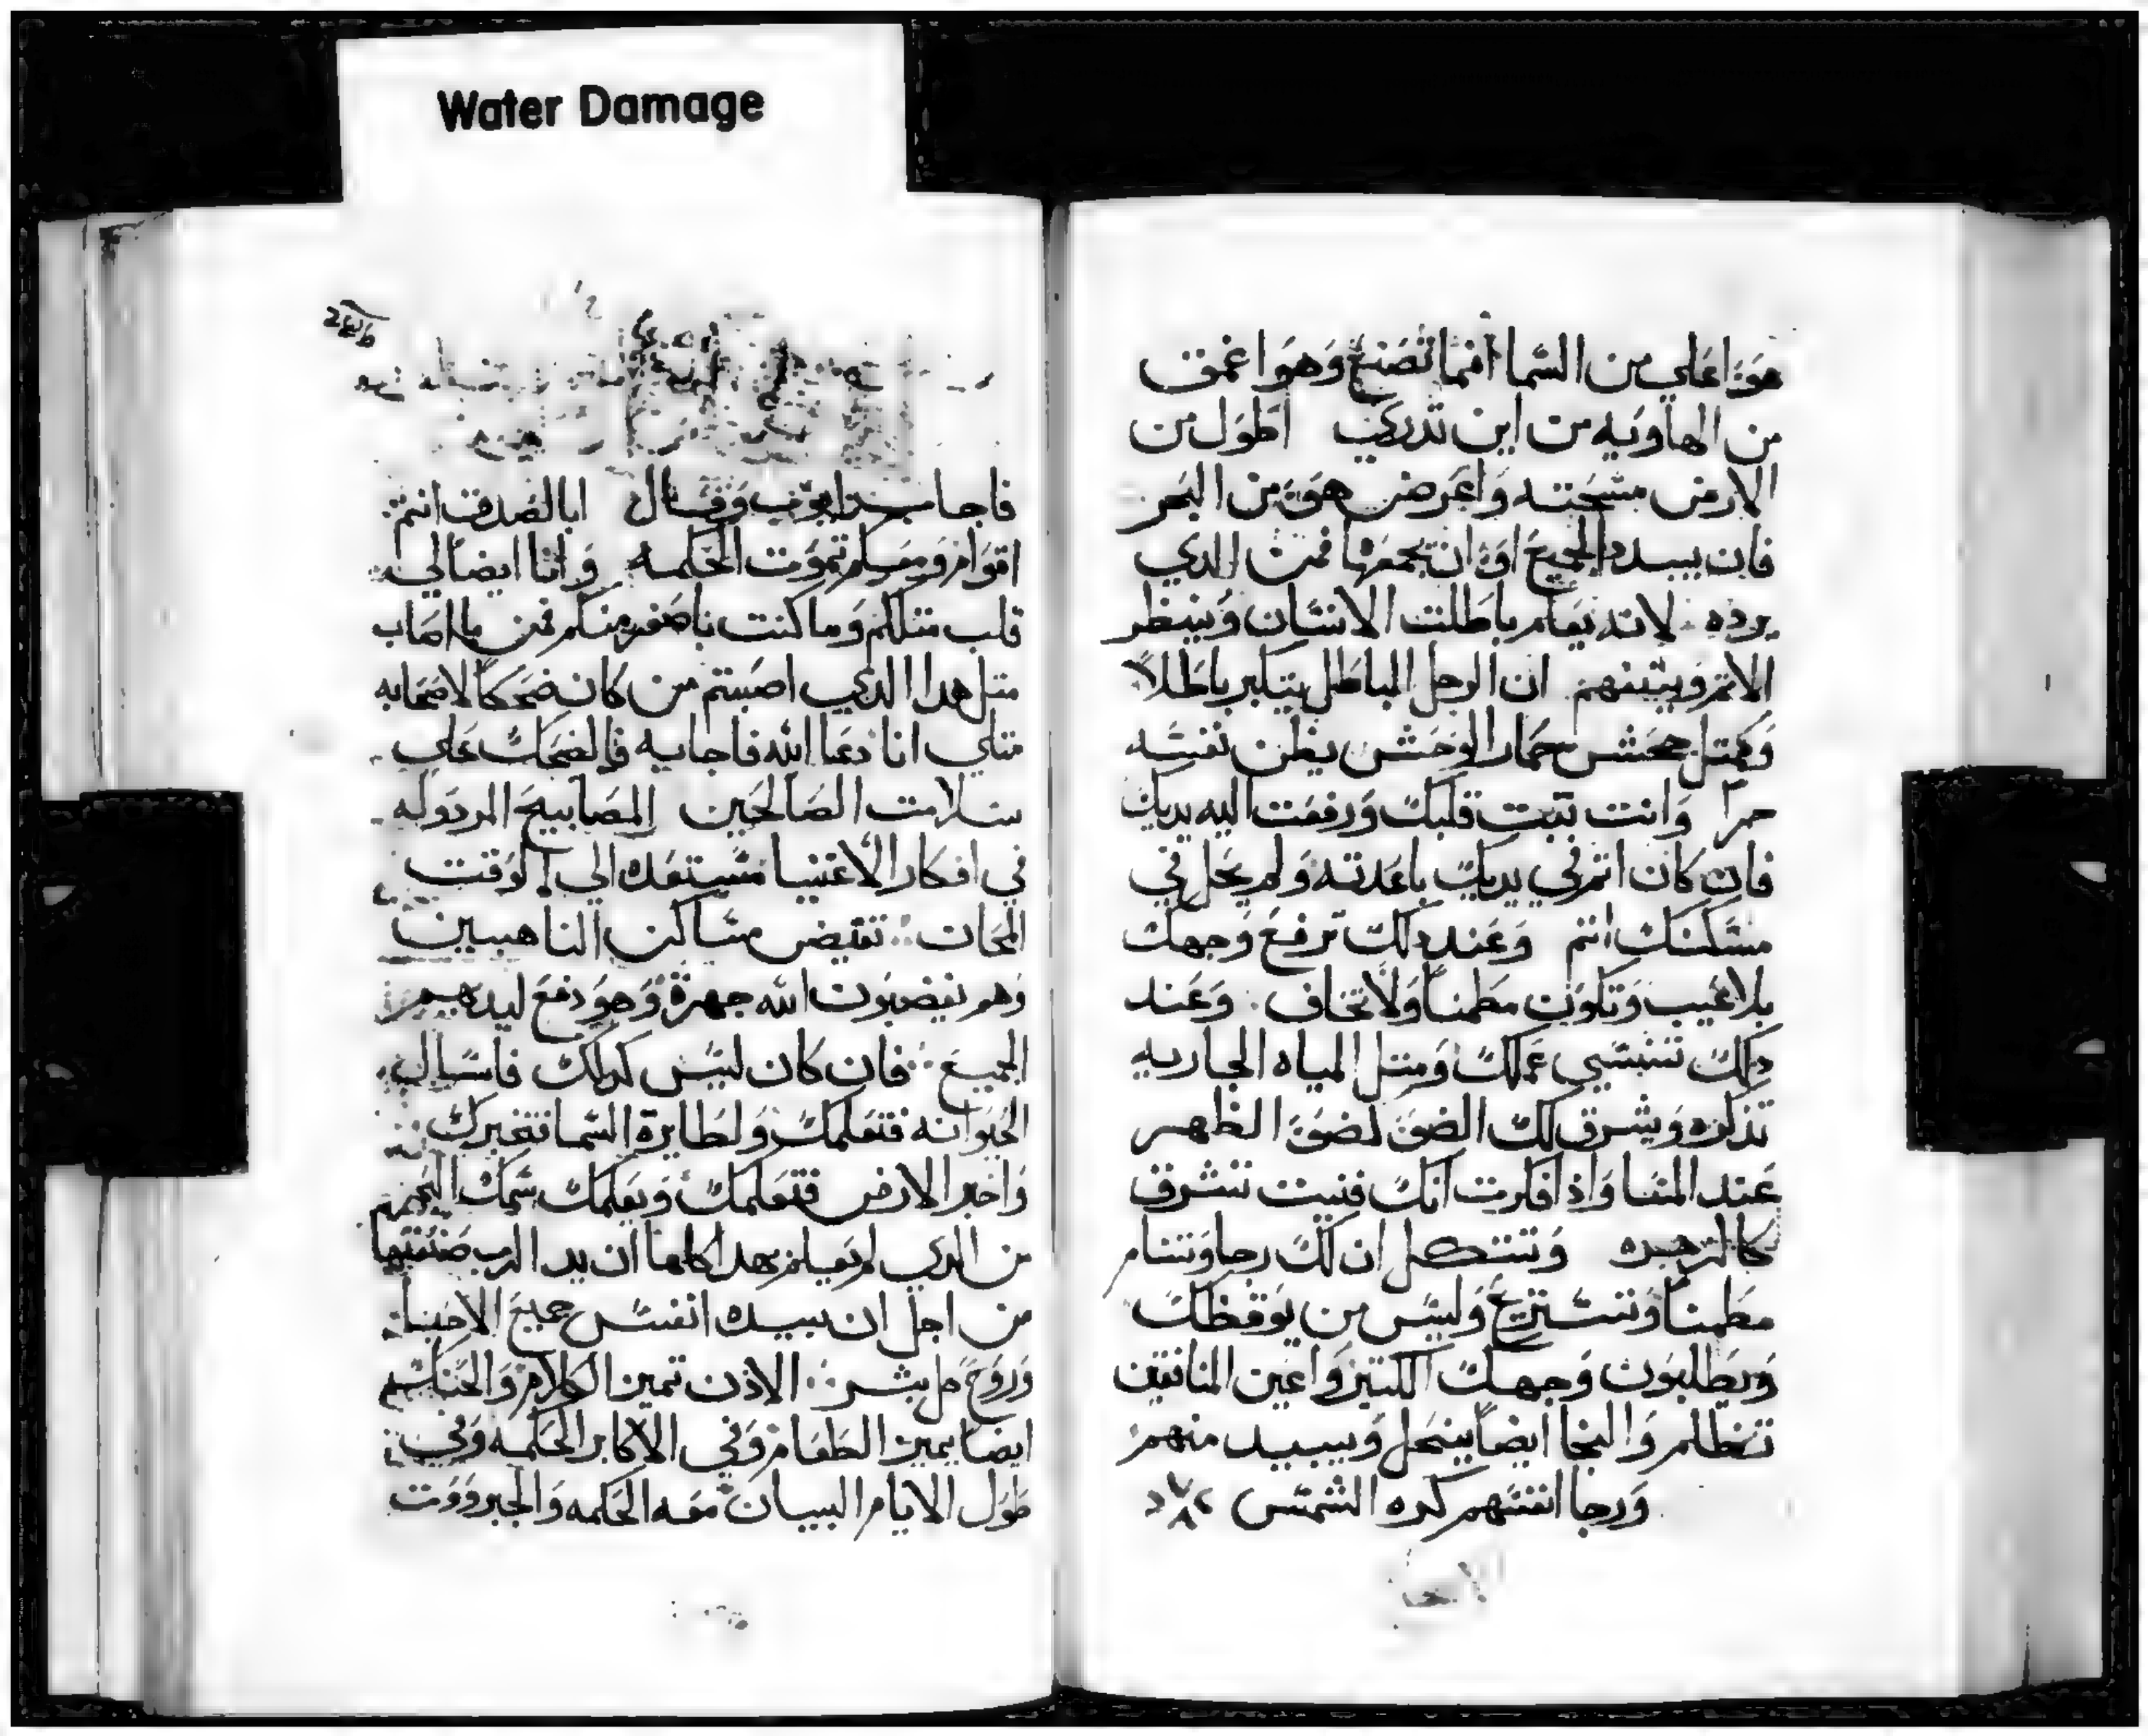 Water Damage
هوَ اعَلي من السَما افما تصَنع وَهوَ اغمق
من الهاويه من اين تدرك اطوَل من
الارض مسَحَته وَاعَرض هوَ من البَحر
فان يبدد الجميعَ اوَ ان يجمعَها فمن الدي
يرده لانه يعَلم باطلت الانسَان وَينظر
الاتم وَيتبتهم ان الرجل الباطل يتكبر باطلاً
وَكمتل جحَش حَمار الوَحَش يظن نفسَه
حرا وَانت تبت قلبك وَرفعَت اليه يديك
فان كان اتم في يديك باعَدته وَلم يحَل في
مسَكنك اتم وَعَند دلك ترفعَ وَجهك
بلا عَيب وَتكوَن مطمناً وَلا تخاف وَعَند
دلك تنسَي عَملك وَمتل المياه الجاريه
تذكره وَيشرق لك الضوَ لضوَ الظهر
عَند المسَا وَاذا فكرت انك فنيت تشرق
كالزهره وَتتكل ان لك رجا وَتنام
مطمناً وَتسَتريحَ وَليسَ من يوَقظك
وَيطلبوَن وَجهك الكتير وَاعين المنافقين
تظلم وَالنجا ايضاً ينحَل وَيبيد منهم
وَرجا انفسَهم كده الشمس
فاجاب ايوَب وَقال ابالصَدق انتم
اقوَام وَمعَكم تموَت الحَكمه وَانا ايضاً لي
قلب متلكم وَما كنت باصَغر منكم فمن ما اصاب
متل هدا الدي اصَبتم من كان ضحَكاً لاصحَابه
متلي انا دعَا الله فاجابه فالضحَك عَلي
سَلامت الصَالحَين المصَابيحَ المردوَله
في افكار الاغنيا مسَتعَده الي الوَقت
المحَان تفيض مسَاكن الناهبين
وَهم يغضبوَن الله جهرة وَهوَ دفعَ ليديهم
الجميعَ فان كان ليسَ كدلك فاسَال
الحَيوَانه فتعَلمك وَلطايرة السَما فتخبرك
وَاخبر الارض فتعَلمك وَيعَلمك سَمك البحَر
من الدي لم يعَلم بهدا كلها ان يد الرب صَنعَتها
من اجل ان بيده انفسَ جميعَ الاحَيا
وَروَحَ كل بشر الاذن تميز الكلام وَالحَنك
ايضاً يميز الطعَام وَفي الاكابر الحَكمه وَفي
طوَل الايام البيان معَه الحَكمه وَالجبروَوت